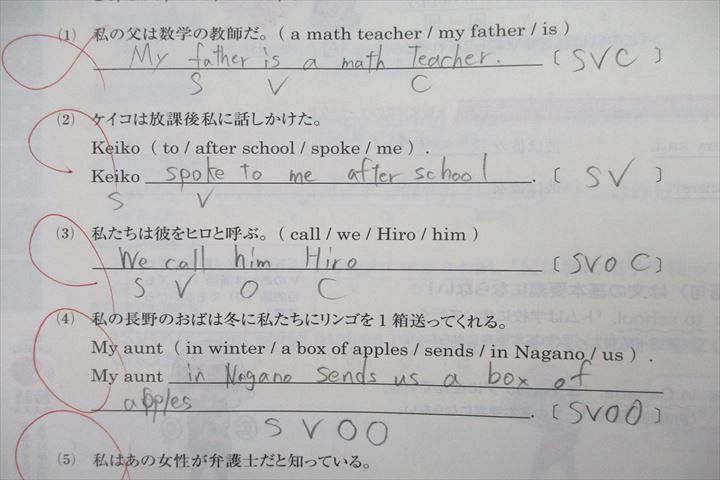 (1) 私の父は数学の教師だ。( a math teacher / my father / is )
My father is a math Teacher. 〔 SVC 〕
S V C
(2) ケイコは放課後私に話しかけた。
Keiko ( to / after school / spoke / me ) .
Keiko spoke to me after school . 〔 SV 〕
S V
(3) 私たちは彼をヒロと呼ぶ。( call / we / Hiro / him )
We call him Hiro 〔 SVOC 〕
S V O C
(4) 私の長野のおばは冬に私たちにリンゴを1箱送ってくれる。
My aunt ( in winter / a box of apples / sends / in Nagano / us ) .
My aunt in Nagano sends us a box of
apples . 〔 SVOO 〕
S V O O
(5) 私はあの女性が弁護士だと知っている。